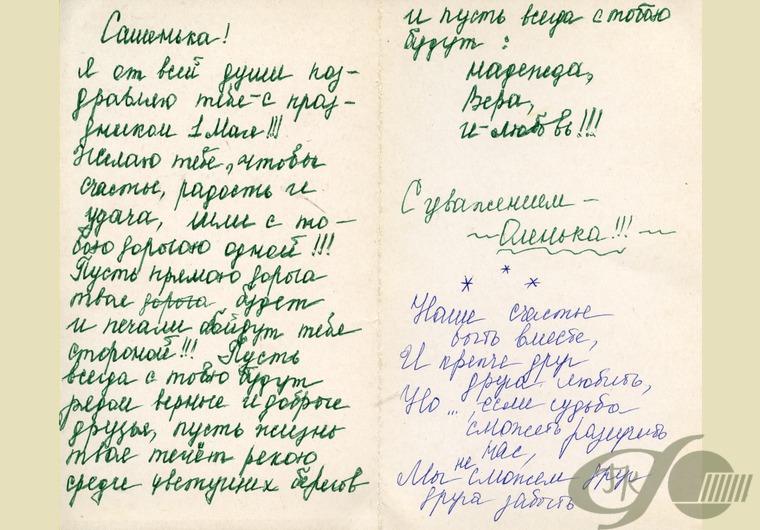 Сашенька!
Я от всей души поз-
дравляю тебя с праз-
дником 1 Мая!!!
Желаю тебе, чтобы
счастье, радость и
удача, шли с то-
бою дорогою одной!!!
Пусть прямою дорога
твоя дорога будет
и печали обойдут тебя
стороной!!! Пусть
всегда с тобою будут
рядом верные и добрые
друзья, пусть жизнь
твоя течёт рекою
среди цветущих берегов
и пусть всегда с тобою
будут:
надежда,
Вера,
и любовь!!!
С уважением –
~ Оленька!!! ~
* * *
Наше счастье
быть вместе,
И крепче друг
друга любить,
Но... если судьба
сможеть разлучить
нас,
Мы не сможем друг
друга забыть